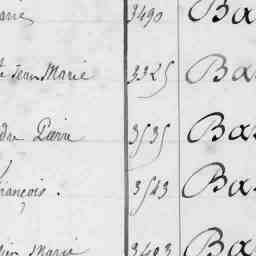 3490 Ba
t Jean Marie 3325 Ba
dre Pierre 3535 Ba
françois. 3543 Ba
Marie 3493 Ba